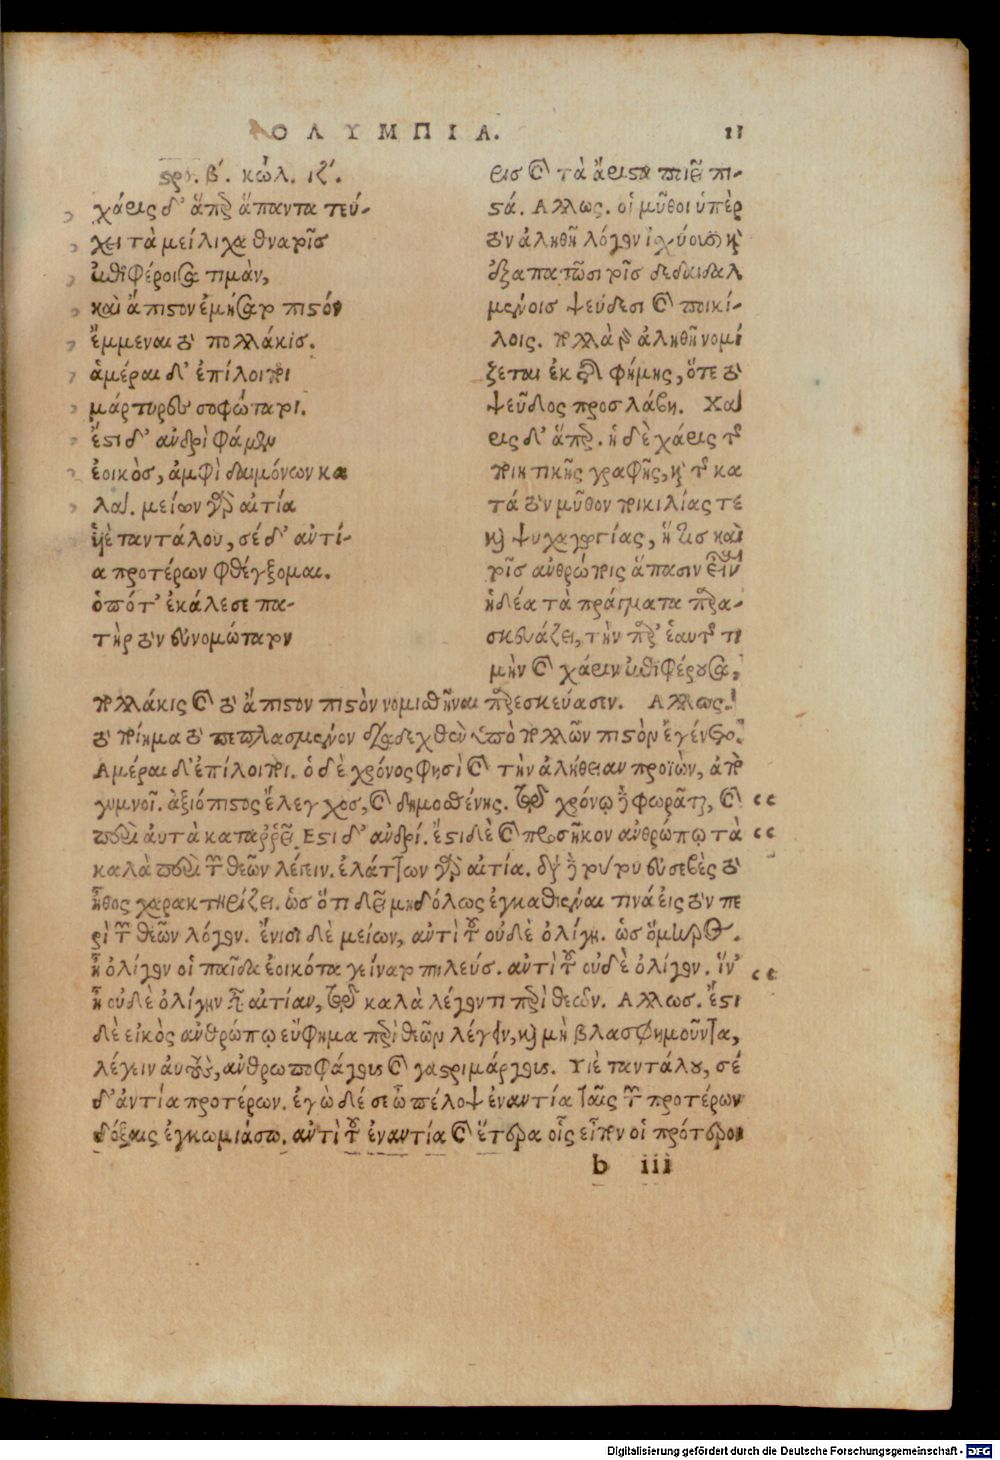 ΟΛΥΜΠΙΑ. 11
στρ. β΄. κώλ. ιζ΄.
χάρις δ' ἅπερ ἅπαντα τεύ-
χει τὰ μείλιχα θνατοῖς
ἐπιφέροισα τιμὰν,
καὶ ἄπιστον ἐμήσατο πιστόν
ἔμμεναι τὸ πολλάκις.
ἁμέραι δ' ἐπίλοιποι
μάρτυρες σοφώτατοι.
ἔστι δ' ἀνδρὶ φάμεν
ἐοικὸς, ἀμφὶ δαιμόνων κα
λά. μείων γὰρ αἰτία
ὑιὲ ταντάλου, σέ δ' αὐτί-
α προτέρων φθέγξομαι.
ὁπότ' ἐκάλεσε πα-
τὴρ τὸν εὐνομώτατον
ρις καὶ τὰ ἄριστα ποιεῖ πι-
στά. Αλλως. οἱ μῦθοι ὑπὲρ
τὸν ἀληθῆ λόγον ἰσχύουσι καὶ
ἐξαπατῶσι τοῖς δεδαιδαλ
μένοις ψεύδεσι καὶ ποικί-
λοις. πολλὰ γὰρ ἀληθῆ νομί
ζεται ἐκ τῆς φήμης, ὅτε τὸ
ψεῦδος προσλάβῃ. Χά
ρις δ' ἅπερ. ἡ δὲ χάρις τῆς
ποιητικῆς γραφῆς, καὶ τοῦ κα
τά τὸν μῦθον ποικιλίας τε
καὶ ψυχαγωγίας, ἥτις καὶ
τοῖς ἀνθρώποις ἅπασιν εἶναι
ἡδέα τὰ πράγματα παρα-
σκευάζει, τὴν παρ' ἑαυτῆς τι
μὴν καὶ χάριν ἐπιφέρουσα,
πολλάκις καὶ τὸ ἄπιστον πιστὸν νομισθῆναι παρεσκεύασεν. Αλλως.
τὸ ποίημα τὸ πεπλασμένον διαδεχθὲν ὑπὸ πολλῶν πιστὸν ἐγένετο.
Αμέραι δ' ἐπίλοιποι. ὁ δὲ χρόνος φησὶ καὶ τὴν ἀλήθειαν προϊὼν, ἀπο
γυμνοῖ. ἀξιόπιστος ἔλεγχος, καὶ δημοσθένης. τῷ χρόνῳ φωρᾶται, καὶ
περὶ αὐτὰ καταρρεῖ. Εστι δ' ἀνδρί. ἔστι δὲ καὶ προσῆκον ἀνθρώπῳ τὰ
καλὰ περὶ τῶν θεῶν λέγειν. ἐλάττων γὰρ αἰτία. διὰ τούτου εὐσεβὲς τὸ
ἦθος χαρακτηρίζει. ὡς ὅτι δεῖ μηδόλως ἐγκαθιέναι τινά εἰς τὸν πε
ρὶ τῶν θεῶν λόγον. ἔνιοι δὲ μείων, αὐτὶ τοῦ οὐδὲ ὀλίγη. ὡς ὅμηρος.
ἦ ὀλίγον οἱ παῖδα ἐοικότα γείνατο τυδεύς. αὐτὶ τοῦ οὐδὲ ὀλίγον. ἵν'
ᾖ οὐδὲ ὀλίγην τὴν αἰτίαν, τῷ καλὰ λέγοντι περὶ θεῶν. Αλλως. ἔστι
δὲ εἰκὸς ἀνθρώπῳ εὔφημα περὶ θεῶν λέγειν, καὶ μὴ βλασφημοῦντα,
λέγειν αὐτοὺς, ἀνθρωποφάγους καὶ γαστριμάργους. Υιὲ ταντάλου, σέ
δ' ἀντία προτέρων. ἐγὼ δέ σε ὦ πέλοψ ἐναντία ταῖς τῶν προτέρων
δόξαις ἐγκωμιάσω. αὐτὶ τοῦ ἐναντία καὶ ἕτερα οἷς εἶπον οἱ πρότεροι
b iii
Digitalisierung gefördert durch die Deutsche Forschungsgemeinschaft - DFG